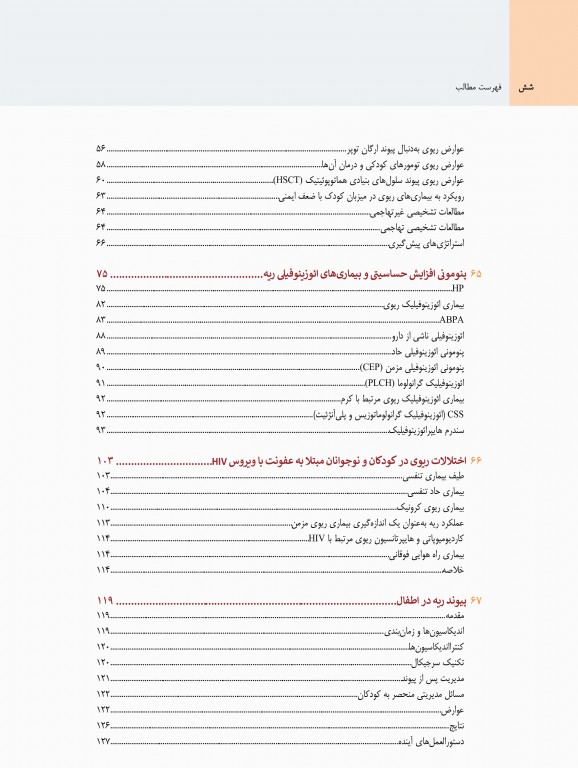 شش فهرست مطالب
عوارض ریوی به‌دنبال پیوند ارگان توپر ۵۶
عوارض ریوی تومورهای کودکی و درمان آن‌ها ۵۸
عوارض ریوی پیوند سلول‌های بنیادی هماتوپوئیتیک (HSCT) ۶۰
رویکرد به بیماری‌های ریوی در میزبان کودک با ضعف ایمنی ۶۳
مطالعات تشخیصی غیرتهاجمی ۶۴
مطالعات تشخیصی تهاجمی ۶۴
استراتژی‌های پیش‌گیری ۶۶
۶۵ پنومونی افزایش حساسیتی و بیماری‌های ائوزینوفیلی ریه ۷۵
HP ۷۵
بیماری ائوزینوفیلیک ریوی ۸۲
ABPA ۸۳
ائوزینوفیلی ناشی از دارو ۸۸
پنومونی ائوزینوفیلی حاد ۸۹
پنومونی ائوزینوفیلی مزمن (CEP) ۹۰
ائوزینوفیلیک گرانولوما (PLCH) ۹۱
بیماری ائوزینوفیلیک ریوی مرتبط با کرم ۹۲
CSS (ائوزینوفیلیک گرانولوماتوزیس و پلی‌آنژئیت) ۹۲
سندرم هایپرائوزینوفیلیک ۹۳
۶۶ اختلالات ریوی در کودکان و نوجوانان مبتلا به عفونت با ویروس HIV ۱۰۳
طیف بیماری تنفسی ۱۰۳
بیماری حاد تنفسی ۱۰۴
بیماری ریوی کرونیک ۱۱۰
عملکرد ریه به‌عنوان یک اندازه‌گیری بیماری ریوی مزمن ۱۱۳
کاردیومیوپاتی و هایپرتانسیون ریوی مرتبط با HIV ۱۱۴
بیماری راه هوایی فوقانی ۱۱۴
خلاصه ۱۱۴
۶۷ پیوند ریه در اطفال ۱۱۹
مقدمه ۱۱۹
اندیکاسیون‌ها و زمان‌بندی ۱۱۹
کنتراندیکاسیون‌ها ۱۲۰
تکنیک سرجیکال ۱۲۰
مدیریت پس از پیوند ۱۲۱
مسائل مدیریتی منحصر به کودکان ۱۲۲
عوارض ۱۲۲
نتایج ۱۲۶
دستورالعمل‌های آینده ۱۲۷